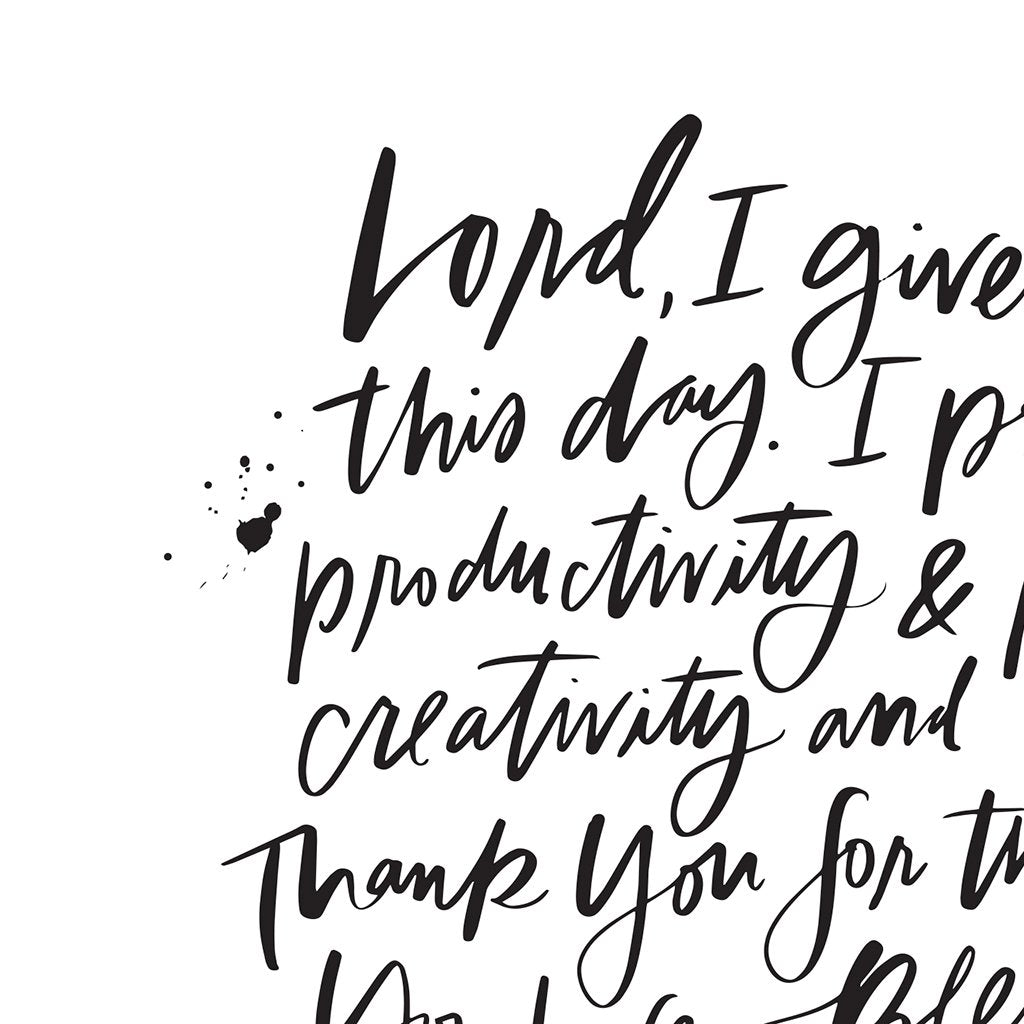 Lord, I give
this day. I p
productivity & p
creativity and
Thank You for th